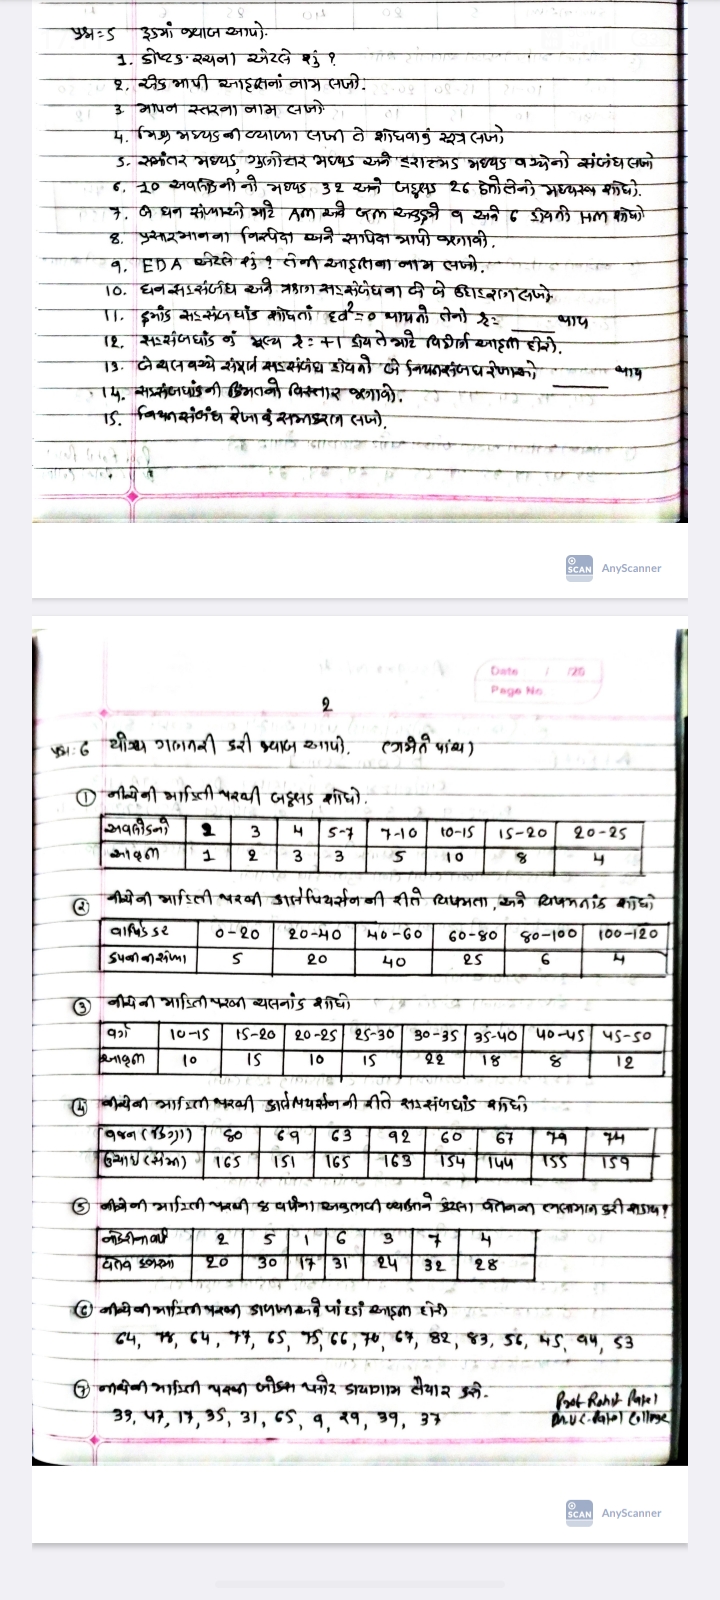 પ્રશ્ન:5 ટૂંકમાં જવાબ આપો.
1. કોષ્ટક રચના એટલે શું ?
2. એક માપી આકૃતિનાં નામ લખો.
3 માપન સ્તરના નામ લખો
4. મિશ્ર મધ્યકની વ્યાખ્યા લખી તે શોધવાનું સૂત્ર લખો
5. સમાંતર મધ્યક, ગુણોત્તર મધ્યક અને હરાત્મક મધ્યક વચ્ચેનો સંબંધ લખો
6. 10 અવલોકનોનો મધ્યક 32 અને બહુલક 26 હોય તો મધ્યસ્થ શોધો.
7. બે ધન સંખ્યાઓ માટે AM અને GM અનુક્રમે 9 અને 6 હોય તો HM શોધો
8. પ્રસારમાનના નિરપેક્ષ અને સાપેક્ષ માપો જણાવો.
9. EDA એટલે શું ? તેની આકૃતિના નામ લખો.
10. ધન સહસંબંધ અને ઋણ સહસંબંધના બે બે ઉદાહરણ લખો
11. ક્રમાંક સહસંબંધાંક શોધતાં Σd²=0 થાય તો તેનો r = ____ થાય
12. સહસંબંધાંકનું મૂલ્ય r = +1 હોય તે માટે વિકીર્ણ આકૃતિ દોરો.
13. બે ચલ વચ્ચે સંપૂર્ણ સહસંબંધ હોય તો બે નિયતસંબંધ રેખાઓ ____ થાય
14. સહસંબંધાંકની કિંમતનો વિસ્તાર જણાવો.
15. નિયતસંબંધ રેખાનું સમીકરણ લખો.
SCAN AnyScanner
Date / /20
Page No
2
પ્રશ્ન: 6 યોગ્ય ગણતરી કરી જવાબ આપો. (ગમેતે પાંચ)
① નીચેની માહિતી પરથી બહુલક શોધો.
અવલોકનો 2 3 4 5-7 7-10 10-15 15-20 20-25
આવૃત્તિ 1 2 3 3 5 10 8 4
② નીચેની માહિતી પરથી કાર્લપિયર્સનની રીતે વિષમતા અને વિષમતાંક શોધો
0-20 20-40 40-60 60-80 80-100 100-120
કંપનીની સંખ્યા 5 20 40 25 6 4
③ નીચેની માહિતી પરથી ચલનાંક શોધો
વર્ગ 10-15 15-20 20-25 25-30 30-35 35-40 40-45 45-50
આવૃત્તિ 10 15 10 15 22 18 8 12
④ નીચેની માહિતી પરથી કાર્લપિયર્સનની રીતે સહસંબંધાંક શોધો
વજન (કિગ્રા) 80 69 63 92 60 67 79 74
ઉંચાઈ (સેમી) 165 151 165 163 154 144 155 159
⑤ નીચેની માહિતી પરથી 8 વર્ષના અનુભવી વ્યક્તિને કેટલા વેતનની ભલામણ કરી શકાય?
2 5 1 6 3 7 4
20 30 17 31 24 32 28
⑥ નીચેની માહિતી પરથી ડાળખા અને પાંદડાં આકૃતિ દોરો
64, 78, 64, 77, 65, 75, 66, 70, 67, 82, 83, 56, 45, 94, 53
⑦ નીચેની માહિતી પરથી બોક્ષ પ્લોટ ડાયાગ્રામ તૈયાર કરો.
39, 47, 17, 35, 31, 65, 9, 29, 39, 37
Prof Rohit Patel
M.V.C. Patel College
SCAN AnyScanner